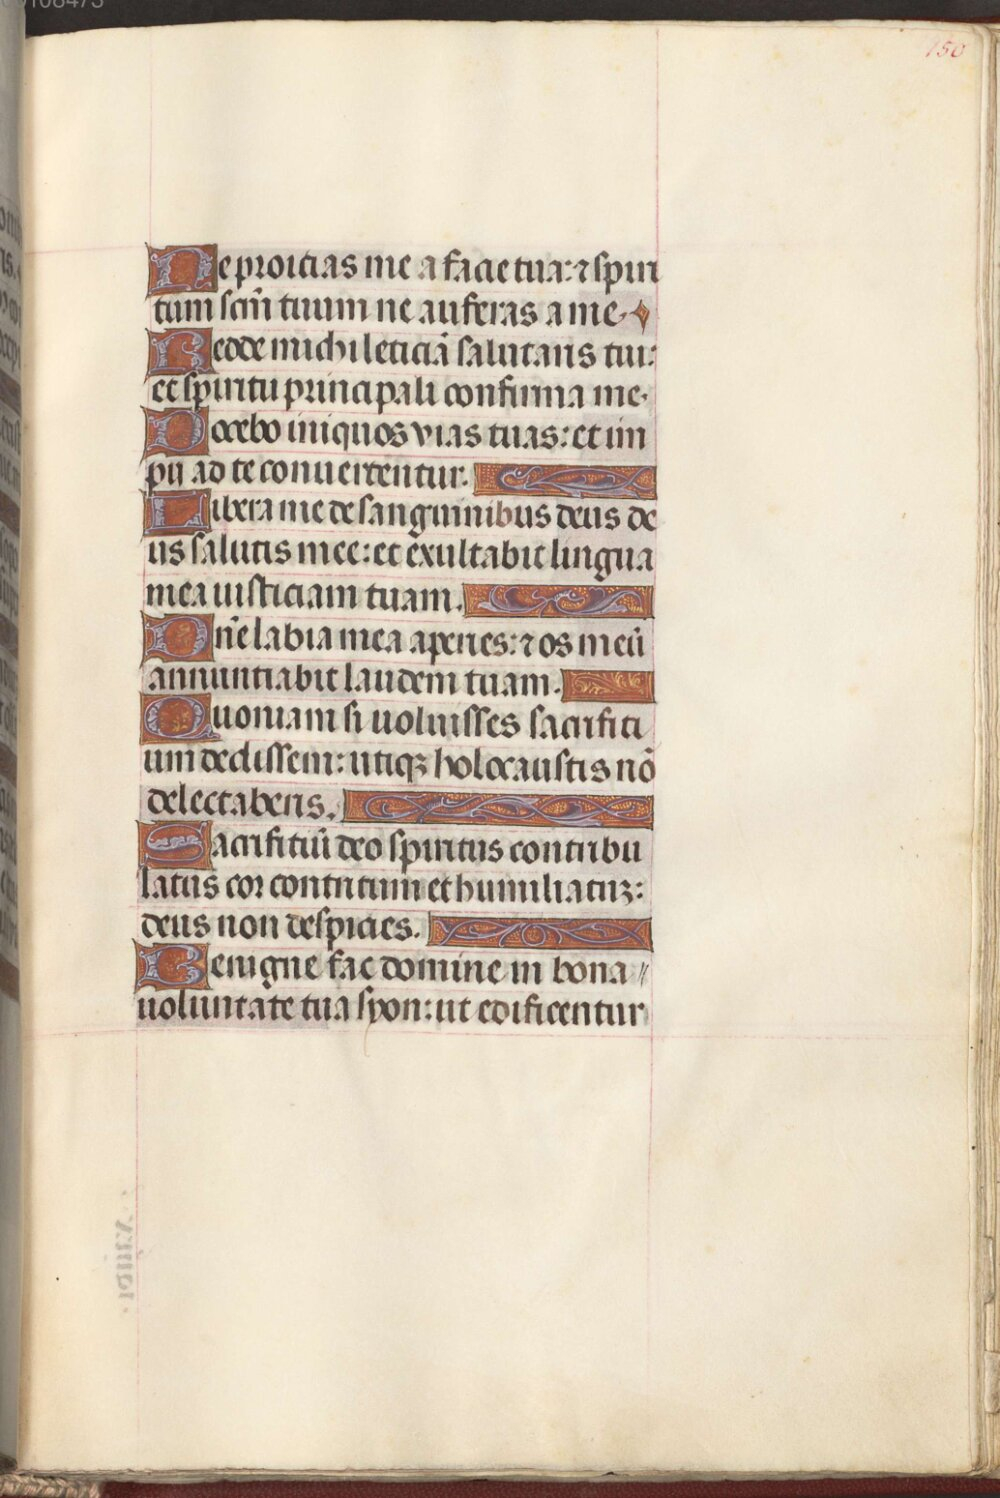 150
Ne proicias me a facie tua: ⁊ spiri
tum scm̄ tuum ne auferas a me.
Redde michi leticiā salutaris tui:
et spiritu principali confirma me.
Docebo iniquos vias tuas: et im
pii ad te conuertentur.
Libera me de sanguinibus deus de
us salutis mee: et exultabit lingua
mea iusticiam tuam.
Dn̄e labia mea aperies: ⁊ os meū
annuntiabit laudem tuam.
Quoniam si uoluisses sacrifici
um dedissem: utiqꝫ holocaustis nō
delectaberis.
Sacrifitiū deo spiritus contribu
latus cor contritum et humiliatuꝫ:
deus non despicies.
Benigne fac domine in bona
uoluntate tua syon: ut edificentur